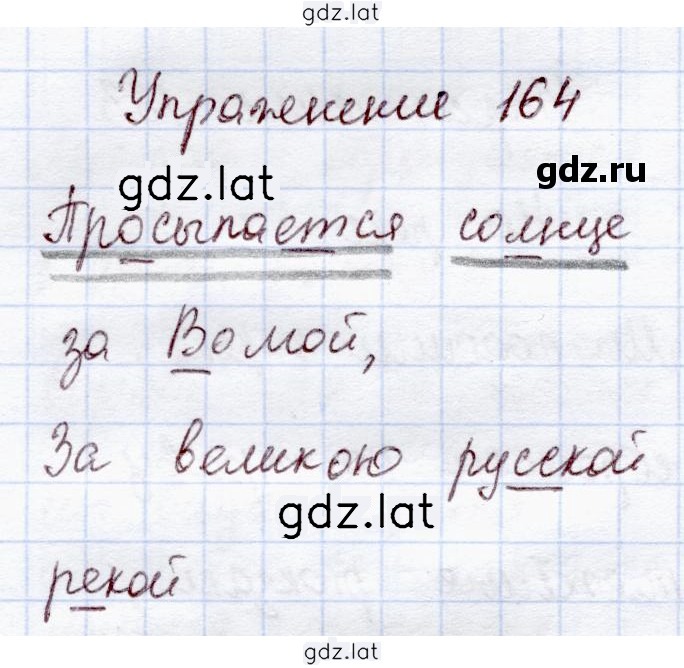 gdz.lat
Упражнение 164
gdz.lat
gdz.ru
Просыпается солнце
за Вомой,
За великою русской
gdz.lat
рекой
gdz.lat